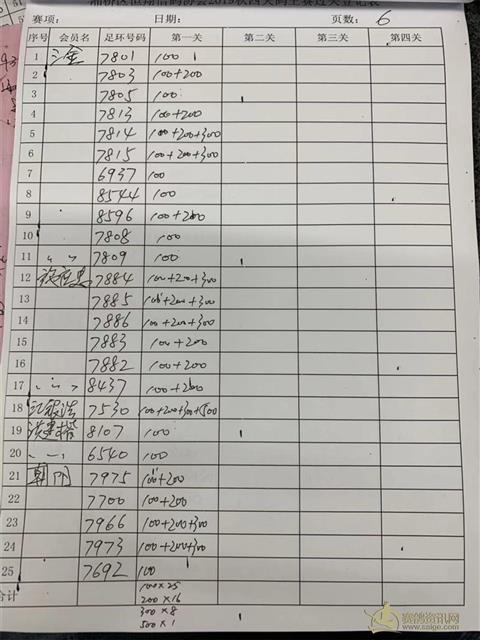 赛项： 日期： 页数： 6
序号 会员名 足环号码 第一关 第二关 第三关 第四关
1 三金 7801 100
2 7803 100+200
3 7805 100
4 7813 100+200
5 7814 100+200+300
6 7815 100+200+300
7 6937 100
8 8544 100
9 8596 100+200
10 7808 100
11 〃 7809 100
12 7884 100+200+300
13 7885 100+200+300
14 7886 100+200+300
15 7883 100+200
16 7882 100+200
17 〃 8437 100+200
18 7530 100+200+300+500
19 8107 100
20 〃 6540 100
21 朝阳 7975 100+200
22 7700 100+200
23 7966 100+200+300
24 7973 100+200+300
25 7692 100
合计 100×25
200×16
300×8
500×1
赛鸽资讯网
www.saige.com